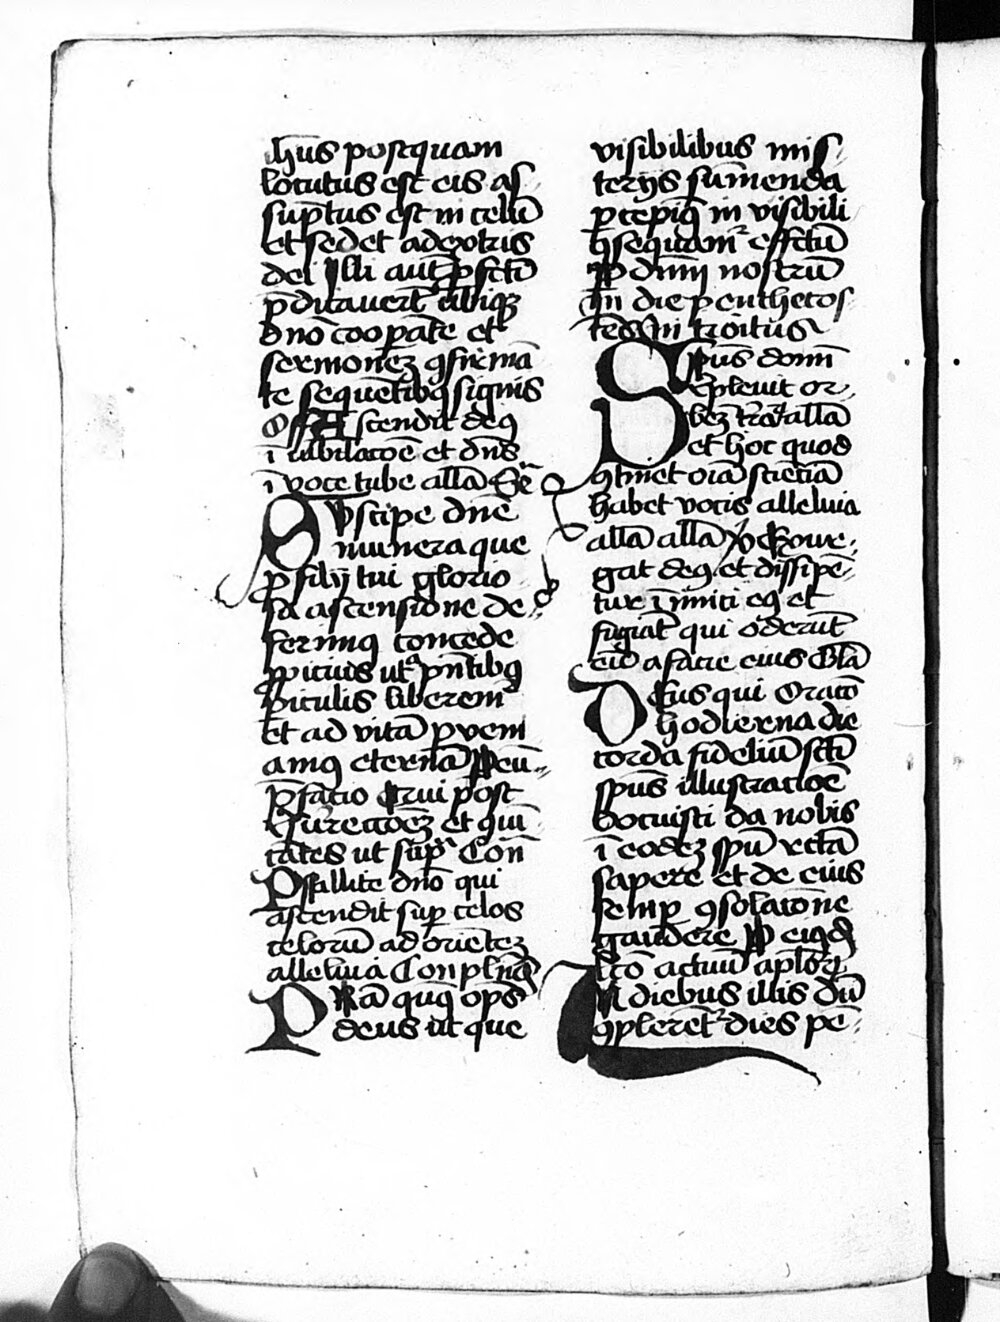 ihūs postquam
locutus est eis as-
sūptus est in celū
et sedet a dextris
dei Illi aut p̄fcti
p̄dicauerūt ubiqȝ
dn̄o coopāte et
sermonēȝ ꝯfirmā
te sequētibꝯ signis
Off Ascendit deꝯ
ī iubilacōe et dn̄s
ī voce tube allā Sē
Suscipe dn̄e
munera que
ꝓ filij tui glorio
sa ascensione de-
ferimꝯ concede
ꝓpicius ut p̄ntibꝯ
piculis liberem̄
et ad vitā ꝑueni
amꝯ eternā P eū-
P̄facio Qui post
resurectoēȝ et qui
tates ut sup̄ Con̄
Psallite dn̄o qui
ascendit sup celos
celorū ad orietēȝ
alleluia Conplnd̄
Prā quꝯ opš
deus ut que
visibilibus mis-
terijs sūmenda
ꝑcepimꝯ in visibili
ꝯsequam̄ effctū
P dnm̄ nostrū
In die penthecos
tes Introitus
Spūs domī
repleuit or-
beȝ trāꝝ allā
et hoc quod
ꝯtinet oīa sciēciā
habet vocis alleluia
allā allā ps Exour-
gat deꝯ et dissipē-
tur īimici eꝯ et
fugiāt qui oderūt
eū a facie eius Glā
Deus qui Oracō
hodierna die
corda fideliū scti
spūs illustracōe
docuisti da nobis
ī eodeȝ spū rctā
sapere et de eius
semp ꝯsolacōne
gaudere P eiꝯd
Lcō actuū aplōꝝ
In diebus illis Dū
ꝯplerent̄ dies pē-